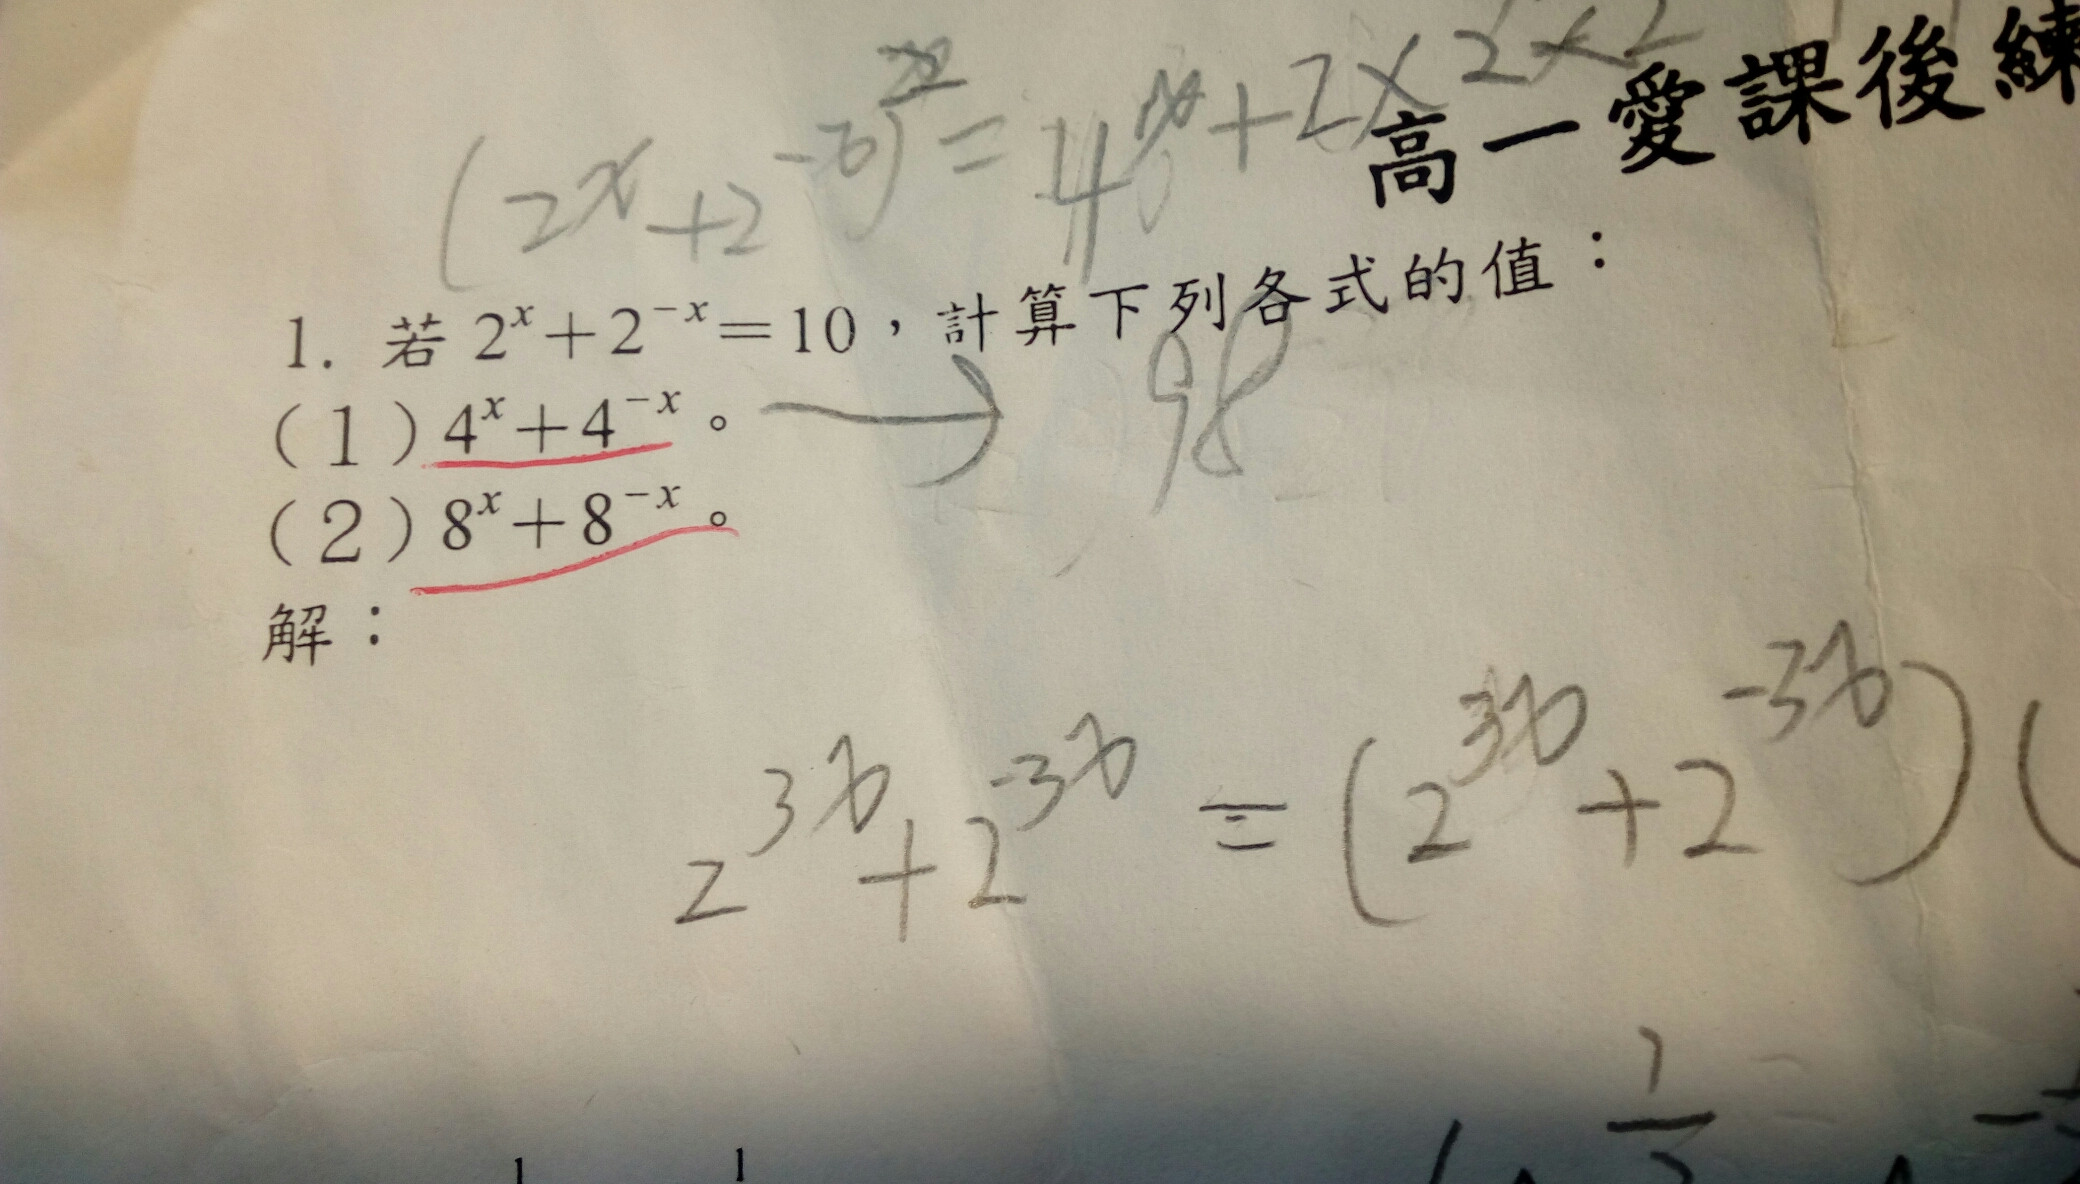 (2^x+2^{-x})^2=4^x+2×2×2
高一愛課後練
1. 若 2^x+2^{-x}=10，計算下列各式的值：
(1) 4^x+4^{-x}。→ 98
(2) 8^x+8^{-x}。
解：
2^{3x}+2^{-3x} = (2^{3x}+2^{-3x})(